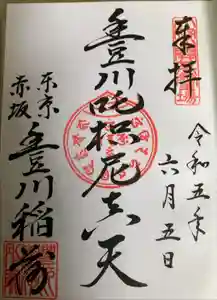 奉拝
令和五年
六月五日
豊川吒枳尼真天
東京
赤坂
豊川稲荷